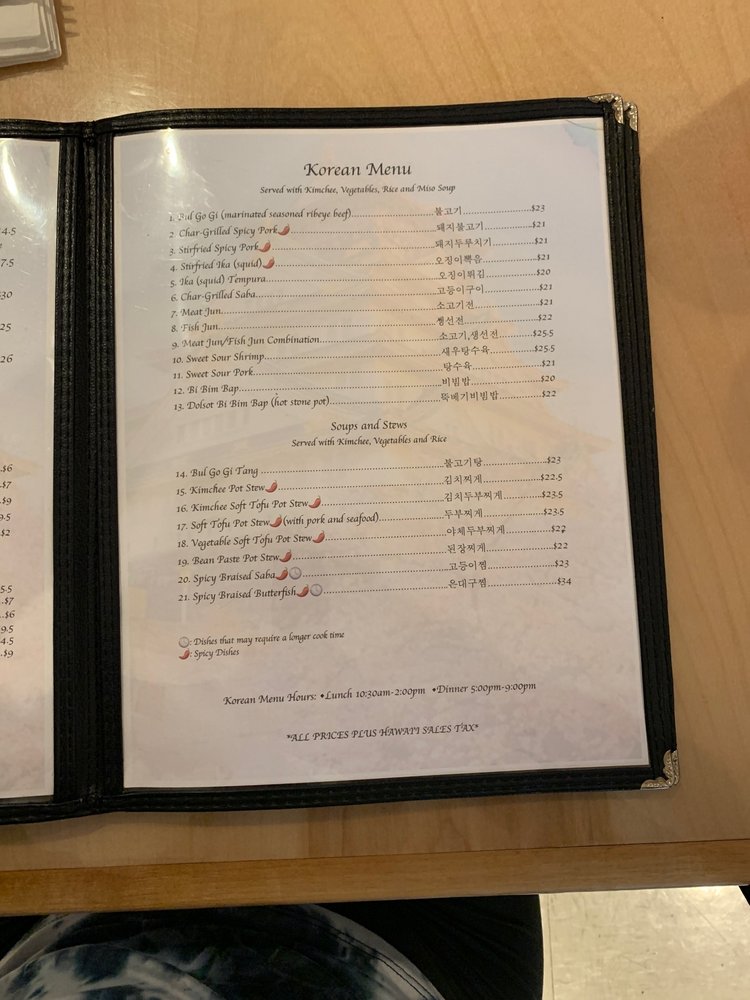 4.5
7.5
$30
25
26
$6
$7
$9
9.5
$2
5.5
$7
$6
9.5
4.5
$9
Korean Menu
Served with Kimchee, Vegetables, Rice and Miso Soup
1. Bul Go Gi (marinated seasoned ribeye beef)..........불고기..........$23
2. Char-Grilled Spicy Pork..........돼지불고기..........$21
3. Stirfried Spicy Pork..........돼지두루치기..........$21
4. Stirfried Ika (squid)..........오징이뽁음..........$21
5. Ika (squid) Tempura..........오징이튀김..........$20
6. Char-Grilled Saba..........고등이구이..........$21
7. Meat Jun..........소고기전..........$21
8. Fish Jun..........생선전..........$22
9. Meat Jun/Fish Jun Combination..........소고기,생선전..........$25.5
10. Sweet Sour Shrimp..........새우탕수육..........$25.5
11. Sweet Sour Pork..........탕수육..........$21
12. Bi Bim Bap..........비빔밥..........$20
13. Dolsot Bi Bim Bap (hot stone pot)..........뚝배기비빔밥..........$22
Soups and Stews
Served with Kimchee, Vegetables and Rice
14. Bul Go Gi Tang..........불고기탕..........$23
15. Kimchee Pot Stew..........김치찌게..........$22.5
16. Kimchee Soft Tofu Pot Stew..........김치두부찌게..........$23.5
17. Soft Tofu Pot Stew(with pork and seafood)..........두부찌게..........$23.5
18. Vegetable Soft Tofu Pot Stew..........야체두부찌게..........$22
19. Bean Paste Pot Stew..........된장찌게..........$22
20. Spicy Braised Saba..........고등이찜..........$23
21. Spicy Braised Butterfish..........은대구찜..........$34
: Dishes that may require a longer cook time
: Spicy Dishes
Korean Menu Hours: •Lunch 10:30am-2:00pm •Dinner 5:00pm-9:00pm
*ALL PRICES PLUS HAWAI'I SALES TAX*